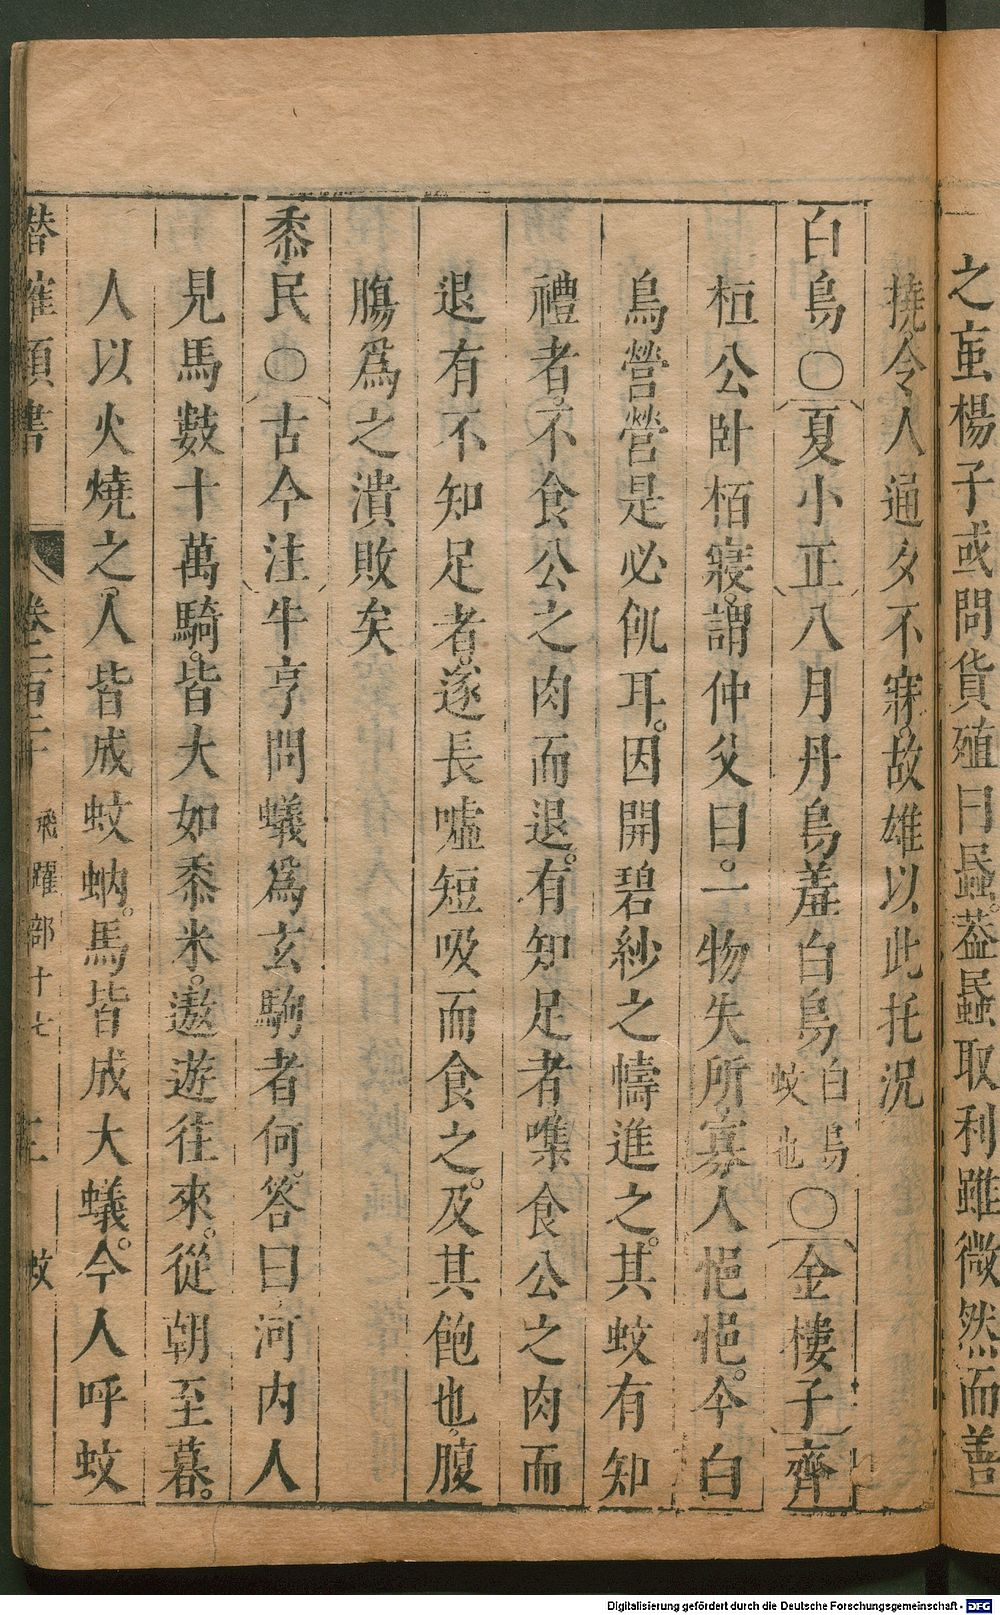 之䖟楊子或問貨殖曰蝨蓋蝨取利雖微然而善
撓令人通夕不寐故雄以此托況
白鳥○夏小正八月丹鳥羞白鳥白鳥蚊也○金樓子齊
桓公臥栢寢謂仲父曰一物失所寡人悒悒今白
鳥營營是必飢耳因開碧紗之幬進之其蚊有知
禮者不食公之肉而退有知足者噍食公之肉而
退有不知足者遂長噓短吸而食之及其飽也腹
腸爲之潰敗矣
黍民○古今注牛亨問蟻爲玄駒者何答曰河内人
見馬數十萬騎皆大如黍米遨遊往來從朝至暮
人以火燒之人皆成蚊蚋馬皆成大蟻今人呼蚊
潛確類書 卷一百二十 飛躍部十七 三 蚊
Digitalisierung gefördert durch die Deutsche Forschungsgemeinschaft - DFG